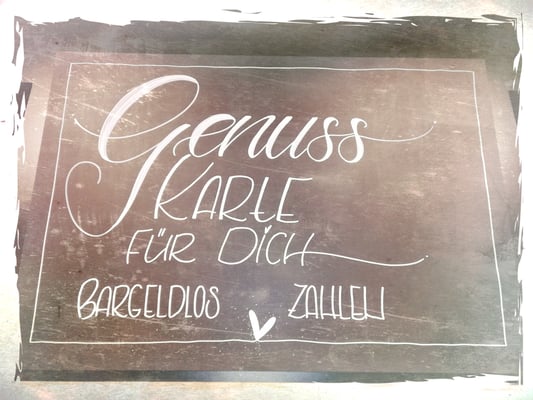 Genuss
KARTE
FÜR DiCH
BARGELDLOS ZAHLEN